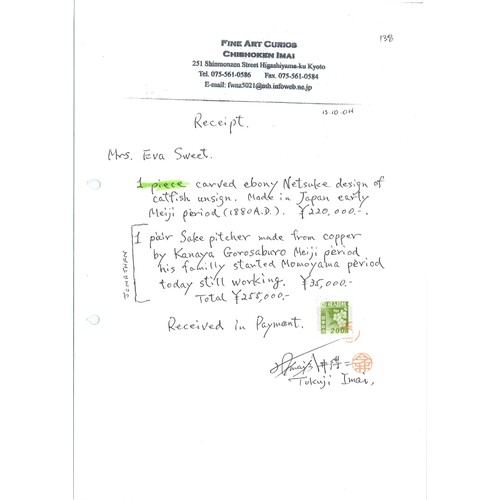 138
FINE ART CURIOS
CHISHOKEN IMAI
251 Shinmonzen Street Higashiyama-ku Kyoto
Tel. 075-561-0586 Fax. 075-561-0584
E-mail: fwnz5021@nh.infoweb.ne.jp
13.10.04
Receipt.
Mrs. Eva Sweet.
1 piece carved ebony Netsuke design of
catfish unsign. Made in Japan early
Meiji period (1880 A.D.). ¥220,000.-.
JONATHAN
1 pair Sake pitcher made from copper
by Kanaya Gorosaburo Meiji period
his familly started Momoyama period
today still working. ¥35,000.-
Total ¥255,000.-
Received in Payment.
200
Tokuji Imai,